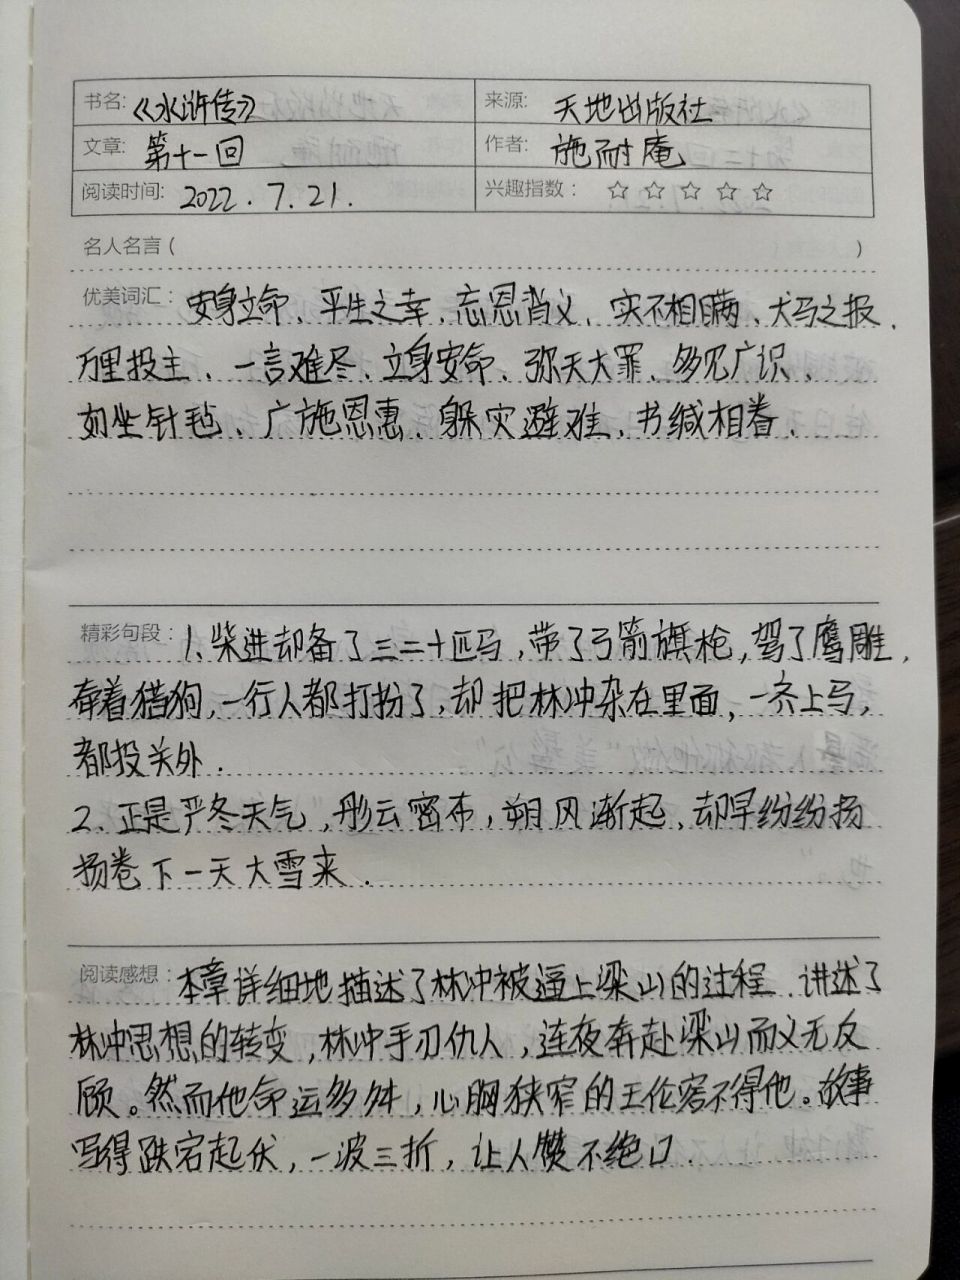 书名: 《水浒传》 来源: 天地出版社
文章: 第十一回 作者: 施耐庵
阅读时间: 2022.7.21. 兴趣指数: ☆ ☆ ☆ ☆ ☆
名人名言 ( )
优美词汇: 安身立命、平生之幸、忘恩背义、实不相瞒、犬马之报、
万里投主、一言难尽、立身安命、弥天大罪、多见广识、
如坐针毡、广施恩惠、躲灾避难、书缄相眷、
精彩句段: 1、柴进却备了三二十匹马,带了弓箭旗枪,驾了鹰雕,
牵着猎狗,一行人都打扮了,却把林冲杂在里面,一齐上马,
都投关外.
2、正是严冬天气,彤云密布,朔风渐起,却早纷纷扬
扬卷下一天大雪来.
阅读感想: 本章详细地描述了林冲被逼上梁山的过程.讲述了
林冲思想的转变,林冲手刃仇人,连夜奔赴梁山而义无反
顾。然而他命运多舛,心胸狭窄的王伦容不得他。故事
写得跌宕起伏,一波三折,让人赞不绝口.